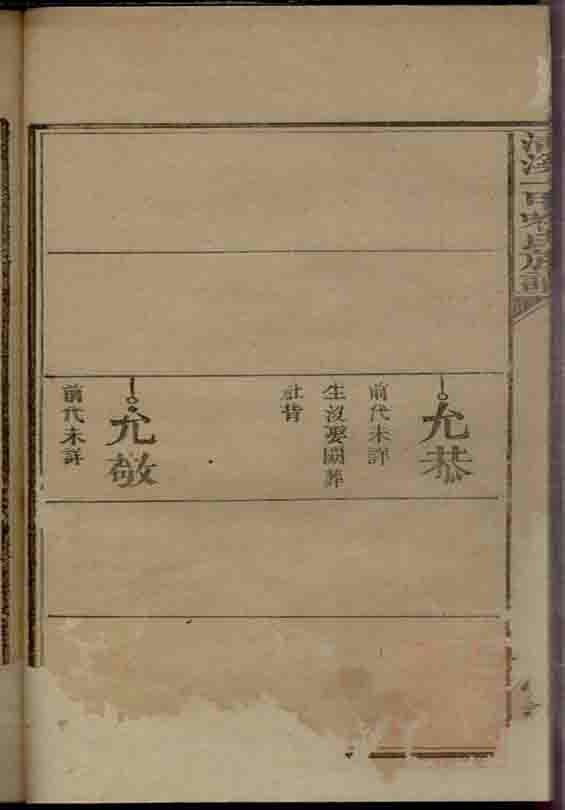 允恭
前代未詳
生沒娶闕葬
社背
允敬
前代未詳